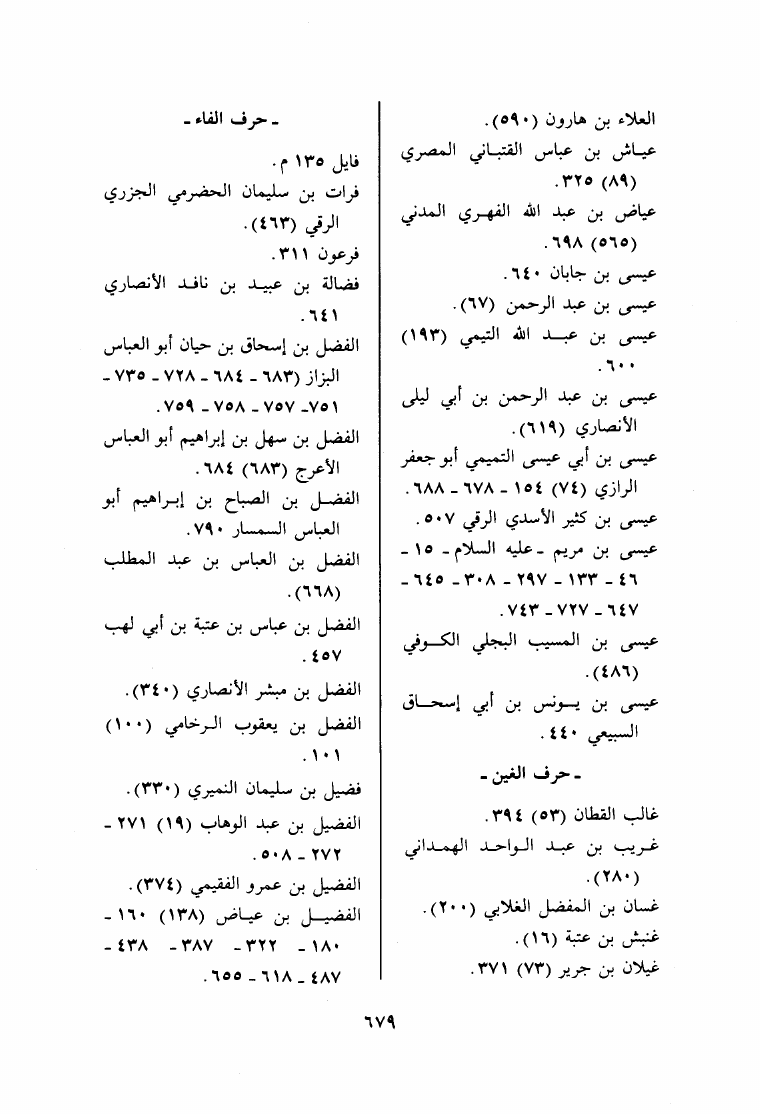 العلاء بن هارون (٥٩٠).
عياش بن عباس القتباني المصري
(٨٩) ٣٢٥.
عياض بن عبد الله الفهري المدني
(٥٦٥) ٦٩٨.
عيسى بن جابان ٦٤٠.
عيسى بن عبد الرحمن (٦٧).
عيسى بن عبد الله التيمي (١٩٣)
٦٠٠.
عيسى بن عبد الرحمن بن أبي ليلى
الأنصاري (٦١٩).
عيسى بن أبي عيسى التميمي أبو جعفر
الرازي (٧٤) ١٥٤ - ٦٧٨ - ٦٨٨.
عيسى بن كثير الأسدي الرقي ٥٠٧.
عيسى بن مريم - عليه السلام - ١٥ -
٤٦ - ١٣٣ - ٢٩٧ - ٣٠٨ - ٦٤٥ -
٦٤٧ - ٧٢٧ - ٧٤٣.
عيسى بن المسيب البجلي الكوفي
(٤٨٦).
عيسى بن يونس بن أبي إسحاق
السبيعي ٤٤٠.
- حرف الغين -
غالب القطان (٥٣) ٣٩٤.
غريب بن عبد الواحد الهمداني
(٢٨٠).
غسان بن المفضل الغلابي (٢٠٠).
غنبش بن عتبة (١٦).
غيلان بن جرير (٧٣) ٣٧١.
- حرف الفاء -
فايل ١٣٥ م.
فرات بن سليمان الحضرمي الجزري
الرقي (٤٦٣).
فرعون ٣١١.
فضالة بن عبيد بن نافد الأنصاري
٦٤١.
الفضل بن إسحاق بن حيان أبو العباس
البزاز (٦٨٣ - ٦٨٤ - ٧٢٨ - ٧٣٥ -
٧٥١ - ٧٥٧ - ٧٥٨ - ٧٥٩.
الفضل بن سهل بن إبراهيم أبو العباس
الأعرج (٦٨٣) ٦٨٤.
الفضل بن الصباح بن إبراهيم أبو
العباس السمسار ٧٩٠.
الفضل بن العباس بن عبد المطلب
(٦٦٨).
الفضل بن عباس بن عتبة بن أبي لهب
٤٥٧.
الفضل بن مبشر الأنصاري (٣٤٠).
الفضل بن يعقوب الرخامي (١٠٠)
١٠١.
فضيل بن سليمان النميري (٣٣٠).
الفضيل بن عبد الوهاب (١٩) ٢٧١ -
٢٧٢ - ٥٠٨.
الفضيل بن عمرو الفقيمي (٣٧٤).
الفضيل بن عياض (١٣٨) ١٦٠ -
١٨٠ - ٣٢٢ - ٣٨٧ - ٤٣٨ -
٤٨٧ - ٦١٨ - ٦٥٥.
٦٧٩